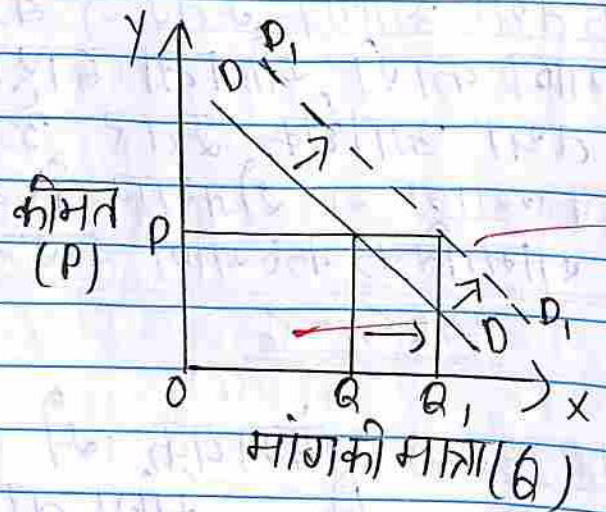 Y
D₁
D
कीमत
(P)
P
D
D₁
O
Q
Q₁
X
मांग की मात्रा (Q)